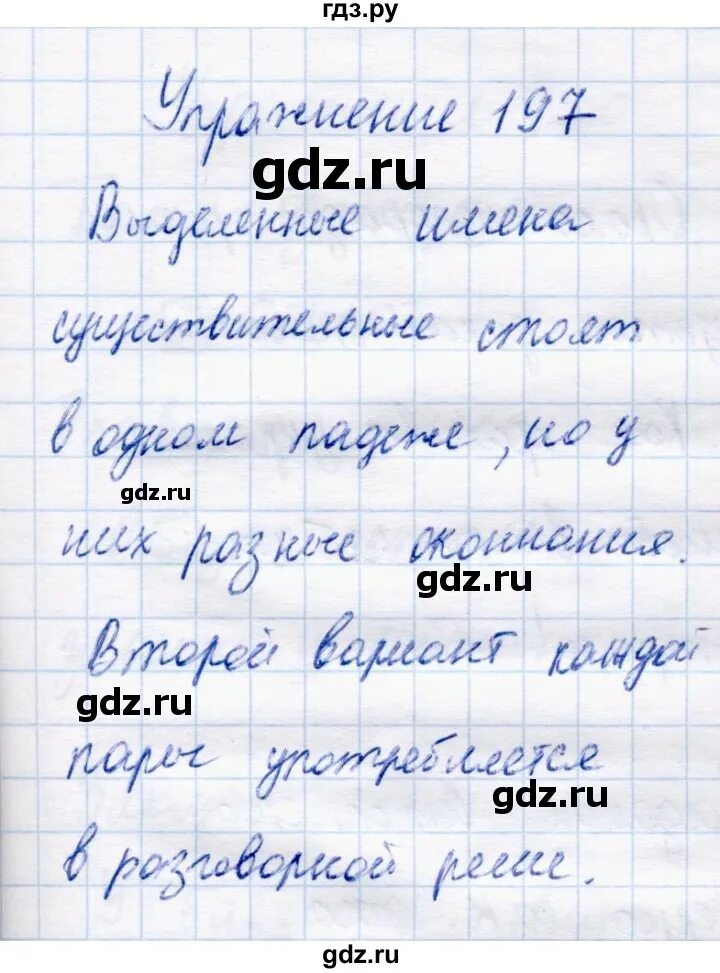 гдз.ру
Упражнение 197
gdz.ru
Выделенные имена
существительные стоят
в одном падеже, но у
gdz.ru
них разные окончания.
gdz.ru
Второй вариант каждой
gdz.ru
пары употребляется
gdz.ru
в разговорной речи.
gdz.ru